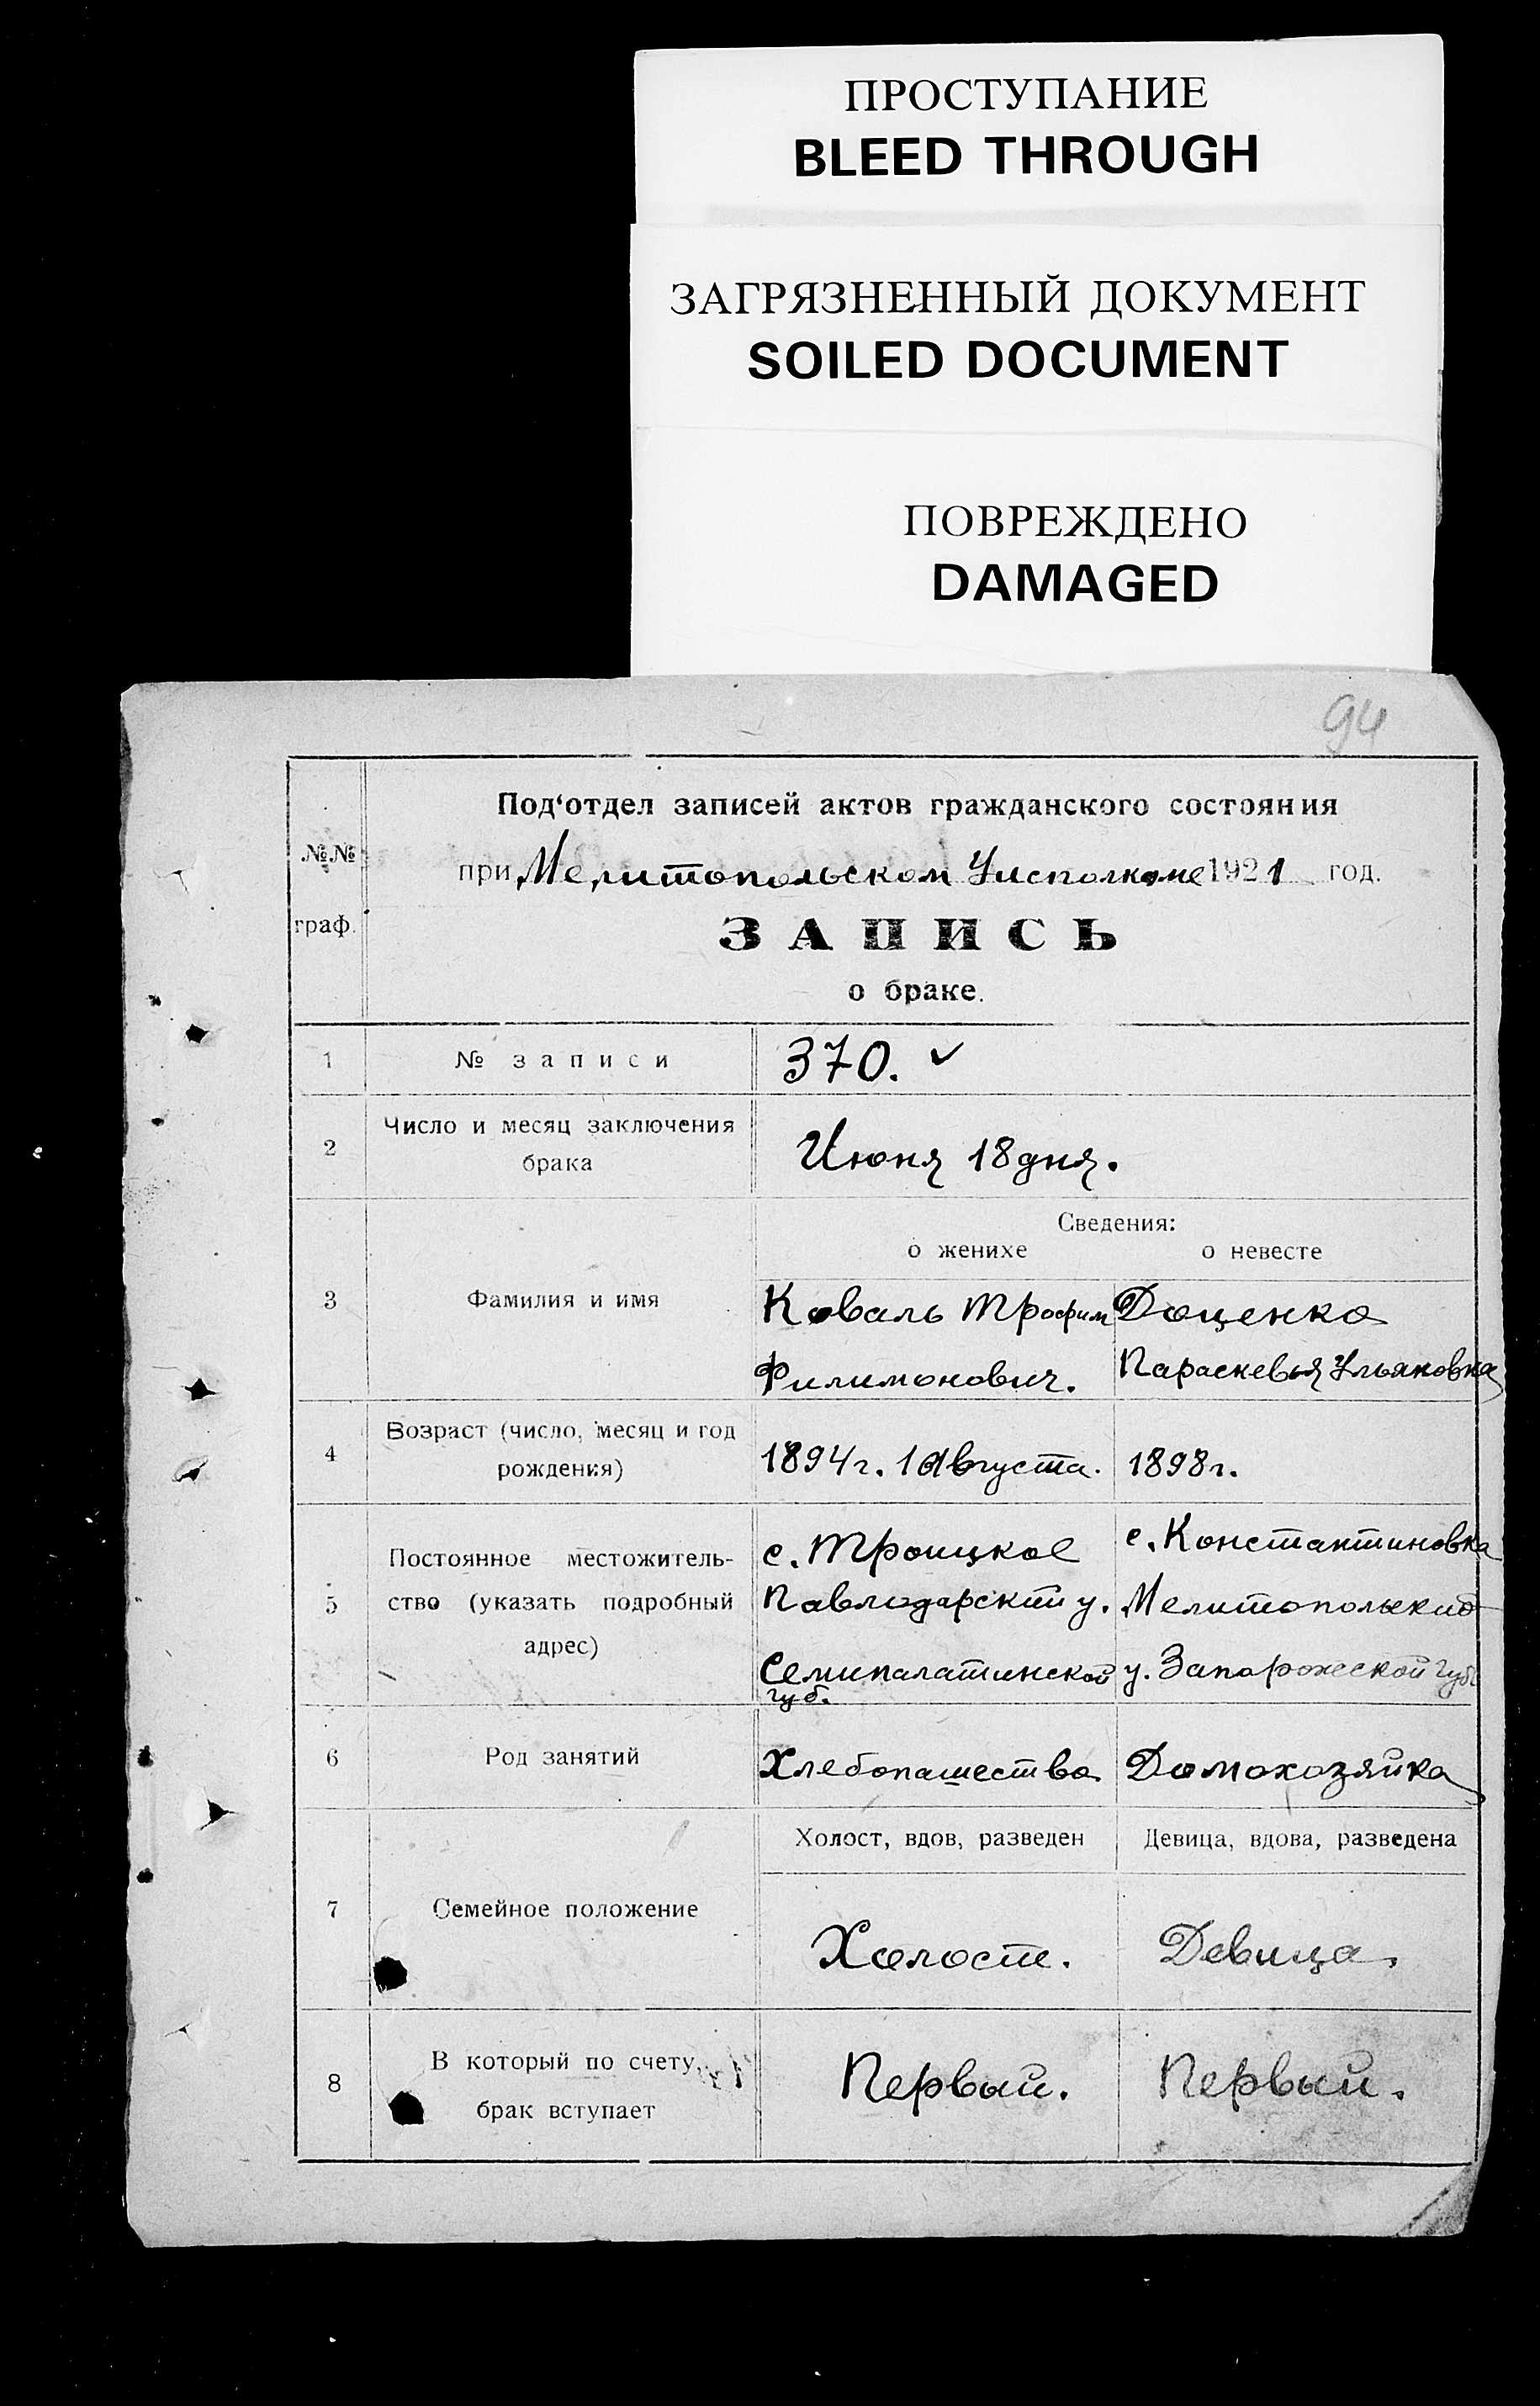 ПРОСТУПАНИЕ
BLEED THROUGH
ЗАГРЯЗНЕННЫЙ ДОКУМЕНТ
SOILED DOCUMENT
ПОВРЕЖДЕНО
DAMAGED
94
№№ граф.
Под‘отдел записей актов гражданского состояния
при Мелитопольском Уисполкоме 1921 год.
ЗАПИСЬ
о браке.
1 № записи 370. ✓
2 Число и месяц заключения
брака
Июня 18 дня.
Сведения:
о женихе о невесте
3 Фамилия и имя
Коваль Трофим
Филимонович.
Доценко
Параскевья Ульяновна
4 Возраст (число, месяц и год
рождения)
1894 г. 1 Августа. 1898 г.
5 Постоянное местожитель-
ство (указать подробный
адрес)
с. Троицкое
Павлодарский у.
Семипалатинской
губ.
с. Константиновка
Мелитопольский
у. Запорожской губ
6 Род занятий Хлебопашество Домохозяйка
Холост, вдов, разведен Девица, вдова, разведена
7 Семейное положение Холост. Девица.
8 В который по счету
брак вступает
Первый. Первый.